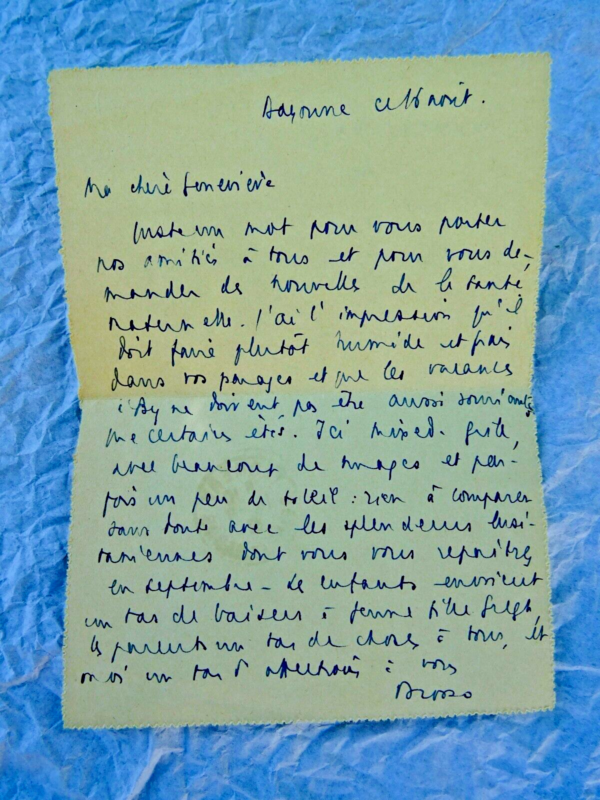 Bayonne ce 16 août.
Ma chère Geneviève
Juste un mot pour vous porter
nos amitiés à tous et pour vous de-
mander des nouvelles de la santé
maternelle. J'ai l'impression qu'il
doit faire plutôt humide et frais
dans vos parages et que les vacances
ne doivent pas être aussi souriantes
que certains étés. Ici mixed-grill,
avec beaucoup de nuages et par-
fois un peu de soleil : rien à comparer
sans doute avec les splendeurs lusi-
taniennes dont vous vous repaîtrez
en septembre - Les enfants envoient
un tas de baisers à jeune fille
les parents un tas de choses à tous, et
un tas d'affections à vous